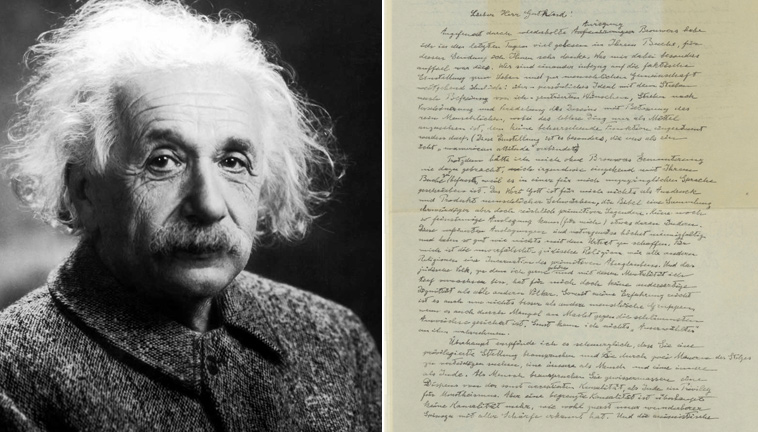 Lieber Herr Gutkind!
Anregung
Angefeuert durch wiederholte Brouwers habe
ich in den letzten Tagen viel gelesen in Ihrem Buche, für
dessen Sendung ich Ihnen sehr danke. Was mir dabei besonders
auffiel war dies. Wir sind einander inbezug auf die faktische
Einstellung zum Leben und zur menschlichen Gemeinschaft
weitgehend ähnlich: über-persönliches Ideal mit dem Streben
nach Befreiung von ich-zentrierten Wünschen, Streben nach
Verschönerung und Veredelung des Daseins mit Betonung des
rein Menschlichen, wobei das leblose Ding nur als Mittel
anzusehen ist, dem keine beherrschende Funktion eingeräumt
werden darf. (Diese Einstellung ist es besonders, die uns als ein
echt „unamerican attitude" verbindet)
Trotzdem hätte ich mich ohne Brouwers Ermunterung
nie dazu gebracht, mich irgendwie eingehend mit Ihrem
Buche zu befassen, weil es in einer für mich unzugänglichen Sprache
geschrieben ist. Das Wort Gott ist für mich nichts als Ausdruck
und Produkt menschlicher Schwächen, die Bibel eine Sammlung
ehrwürdiger aber doch reichlich primitiver Legenden. Keine noch
so feinsinnige Auslegung kann (für mich) etwas daran ändern.
Diese verfeinerten Auslegungen sind naturgemäss höchst mannigfaltig
und haben so gut wie nichts mit dem Urtext zu schaffen. Für
mich ist die unverfälschte jüdische Religion wie alle anderen
Religionen eine Incarnation des primitiven Aberglaubens. Und das
jüdische Volk, zu dem ich gerne gehöre und mit dessen Mentalität ich
tief verwachsen bin, hat für mich doch keine andersartige
Dignität als alle anderen Völker. Soweit meine Erfahrung reicht
ist es auch um nichts besser als andere menschliche Gruppen
wenn es auch durch Mangel an Macht gegen die schlimmsten
Auswüchse gesichert ist. Sonst kann ich nichts „Auserwähltes"
an ihm wahrnehmen.
Überhaupt empfinde ich es schmerzlich, dass Sie eine
privilegierte Stellung beanspruchen und sie durch zwei Mauern des Stolzes
zu verteidigen suchen, eine äussere als Mensch und eine innere
als Jude. Als Mensch beanspruchen Sie gewissermassen einen
Dispens von der sonst acceptierten Kausalität, als Jude ein Privileg
für Monotheismus. Aber eine begrenzte Kausalität ist überhaupt
keine Kausalität mehr, wie wohl zuerst unser wunderbarer
Spinoza mit aller Schärfe erkannt hat. Und die animistische